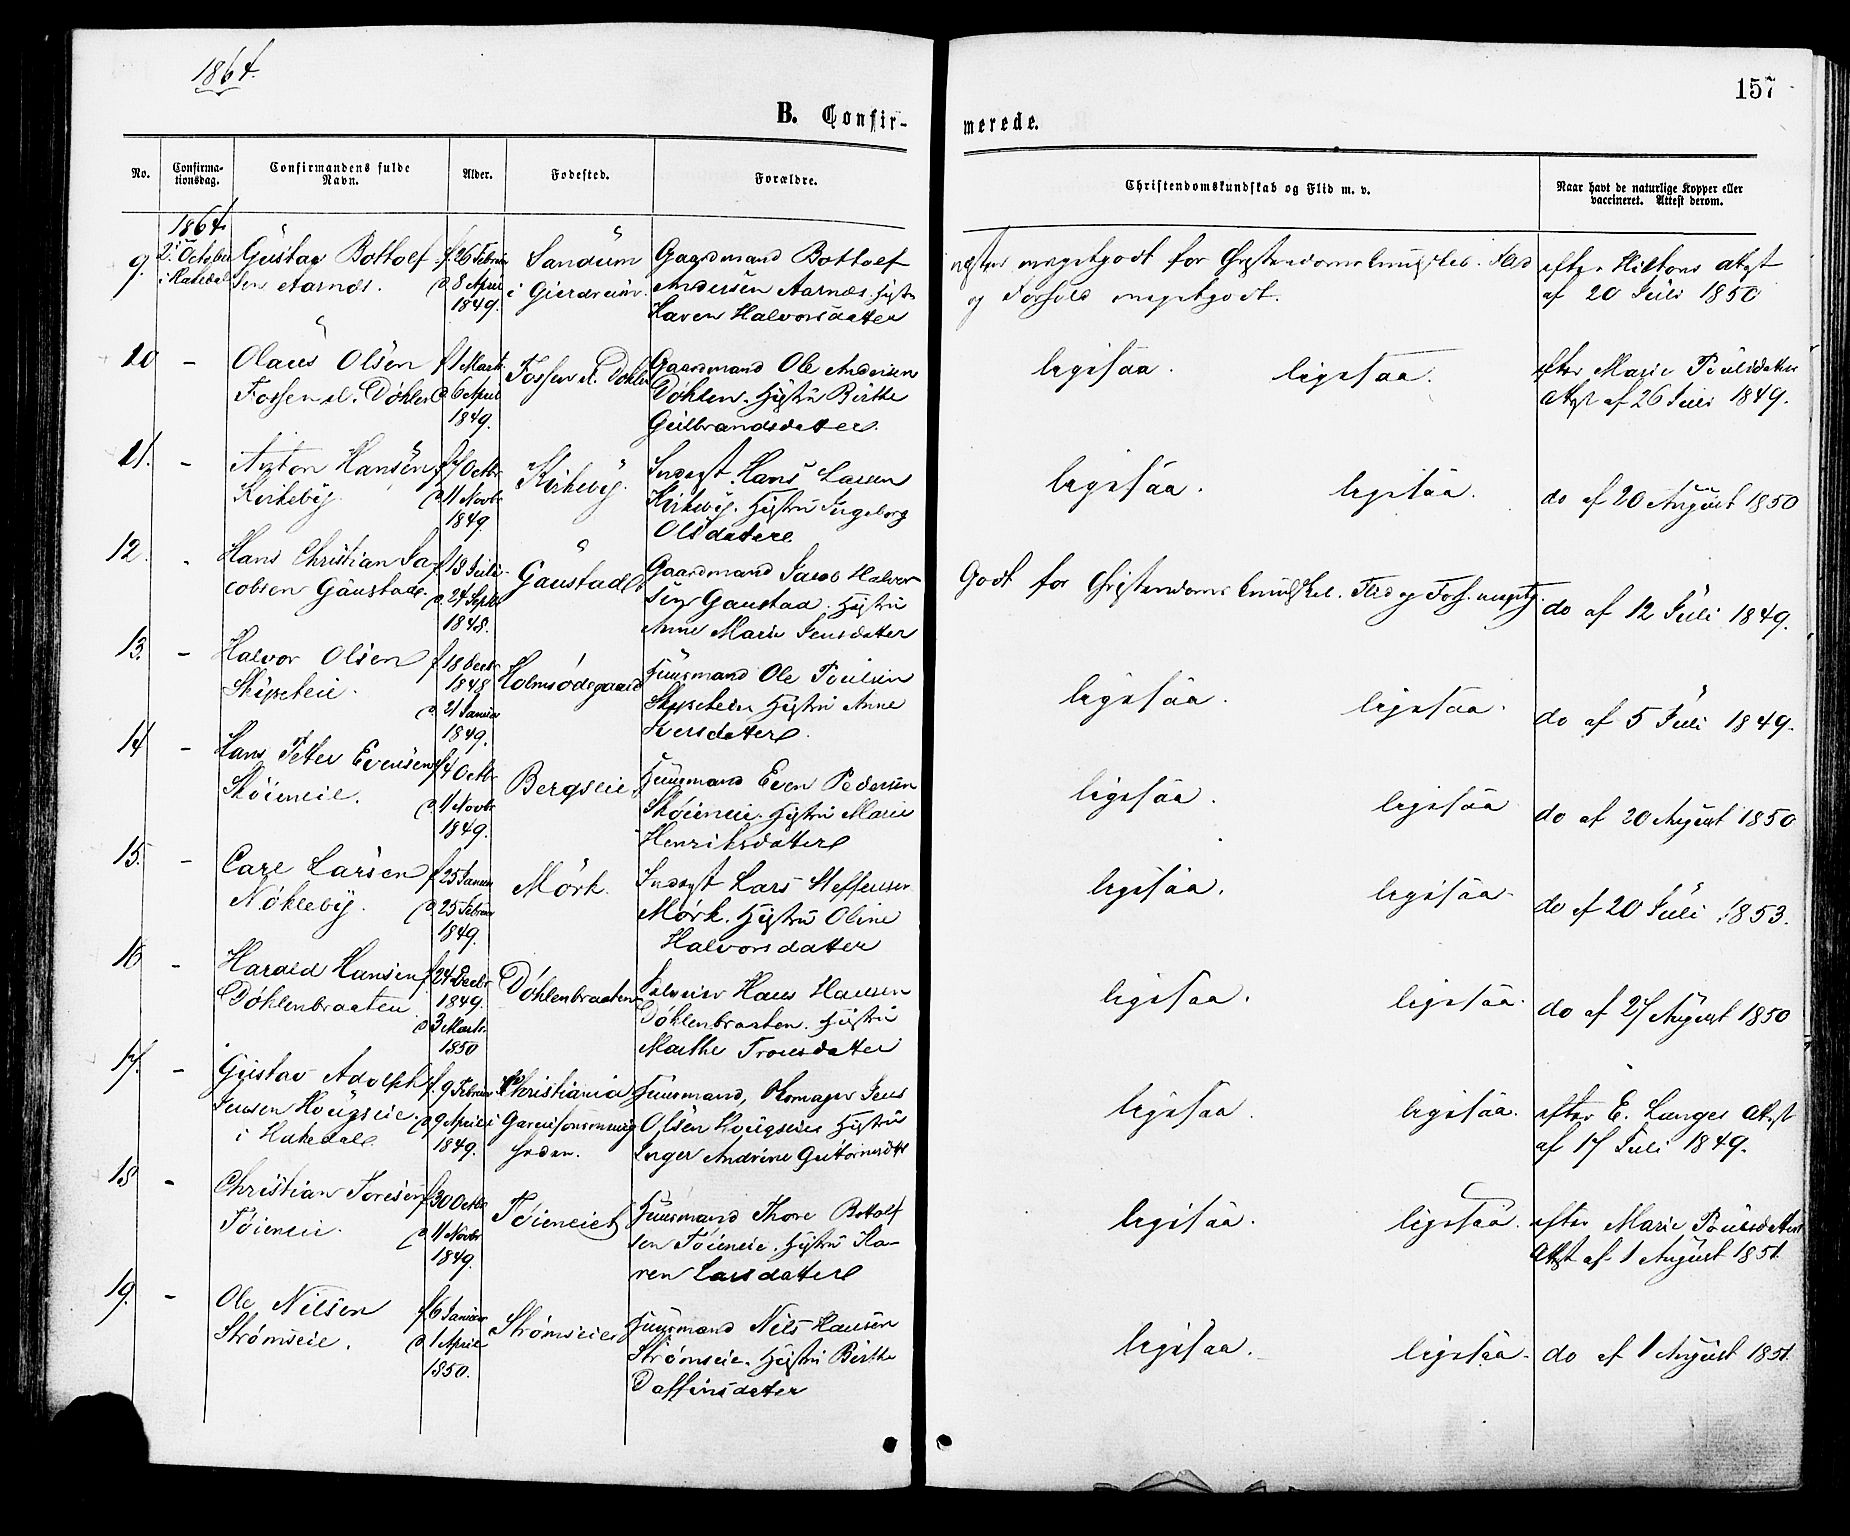 1864.
157
B. Confir-
merede.
No.
Confirma-
tionsdag.
Confirmandens fulde
Navn.
Alder.
Fødested.
Forældre.
Christendomskundskab og Flid m. v.
Naar havt de naturlige Kopper eller
vaccineret. Attest derom.
1864
9. 2. October Gustav Bottolf- f. 26 Februar Sandum Gaardmand Bottolf
sen Aarnæs. d 8 April i Gierdreim Andersen Aarnæs. Hustru
1849. Karen Halvorsdatter
meget godt for Christendomskundskab. Flid
og Forhold meget godt.
efter Hiltons Attest
af 20 Juli 1850
10 - Olaus Olsen f 1 Marts Fossen u. Døhlen Gaardmand Ole Andersen
Fossen u. Døhlen d 6 April Døhlen. Hustru Birthe
1849. Gulbrandsdatter.
ligesaa. ligesaa.
efter Marie Poulsdatters
Attest af 26 Juli 1849.
11. - Anton Hansen f 7 Octbr Kirkeby. Inderst Hans Larsen
Kirkeby. d 11 Novbr Kirkeby. Hustru Ingeborg
1849. Olsdatter
ligesaa. ligesaa.
do af 20 August 1850
12. Hans Christian Ja- f 13 Juli Gaustad Gaardmand Jacob Halvor-
cobsen Gaustad. d. 24 Septbr sen Gaustad. Hustru
1848. Anne Marie Jensdatter
Godt for Christendomskundskab. Flid og Forh. meget g.
do af 12 Juli 1849.
13. - Halvor Olsen f 18 Decbr Holmsødegaard Huusmand Ole Poulsen
1848
d. 21 Januar Hustru Anne
1849. Iversdatter.
ligesaa. ligesaa.
do af 5 Juli 1849.
14 - Hans Peter Evensen f 4 Octbr Bergseie Huusmand Even Pedersen
Skøieneie. d. 11 Novbr Skøieneie. Hustru Marie
1849. Henriksdatter
ligesaa. ligesaa
do af 20 August 1850
15. - Carl Larsen f 25 Januar Mørk. Inderst Lars Steffensen
Nøkleby. d 25 Februar Mørk. Hustru Oline
1849. Halvorsdatter
ligesaa. ligesaa
do af 20 Juli 1853.
16 - Harald Hansen f 24 Decbr Døhlenbraaten Hans Hansen
Døhlenbraaten 1849. Døhlenbraaten. Hustru
d 3 Marts Marthe Tronsdatter
1850
ligesaa. ligesaa.
do af 21 August 1850
17. - Gustav Adolph f. 9 Februar Christiania Huusmand, Jens
Jensen Hougseie. d 9 April Garnisonsmenig- Olsen Hougseie Hustru
i Hakedal. 1849. heden. Inger Andrine
ligesaa. ligesaa.
efter E. Langes Attest
af 17 Juli 1849.
18 - Christian Toresen f 30 Octbr Tøieneiet Huusmand Thore Bottolf
Tøieneie. d 11 Novbr sen Tøieneie. Hustru Ka-
1849. ren Larsdatter
ligesaa. ligesaa.
efter Marie Poulsdatters
Attest af 1 August 1851.
19. - Ole Nilsen f 6 Januar Strømseie Huusmand Nils Hansen
Strømseie. d 1 April Strømseie. Hustru Birthe
1850. Daffinsdatter
ligesaa. ligesaa.
do af 1 August 1851.